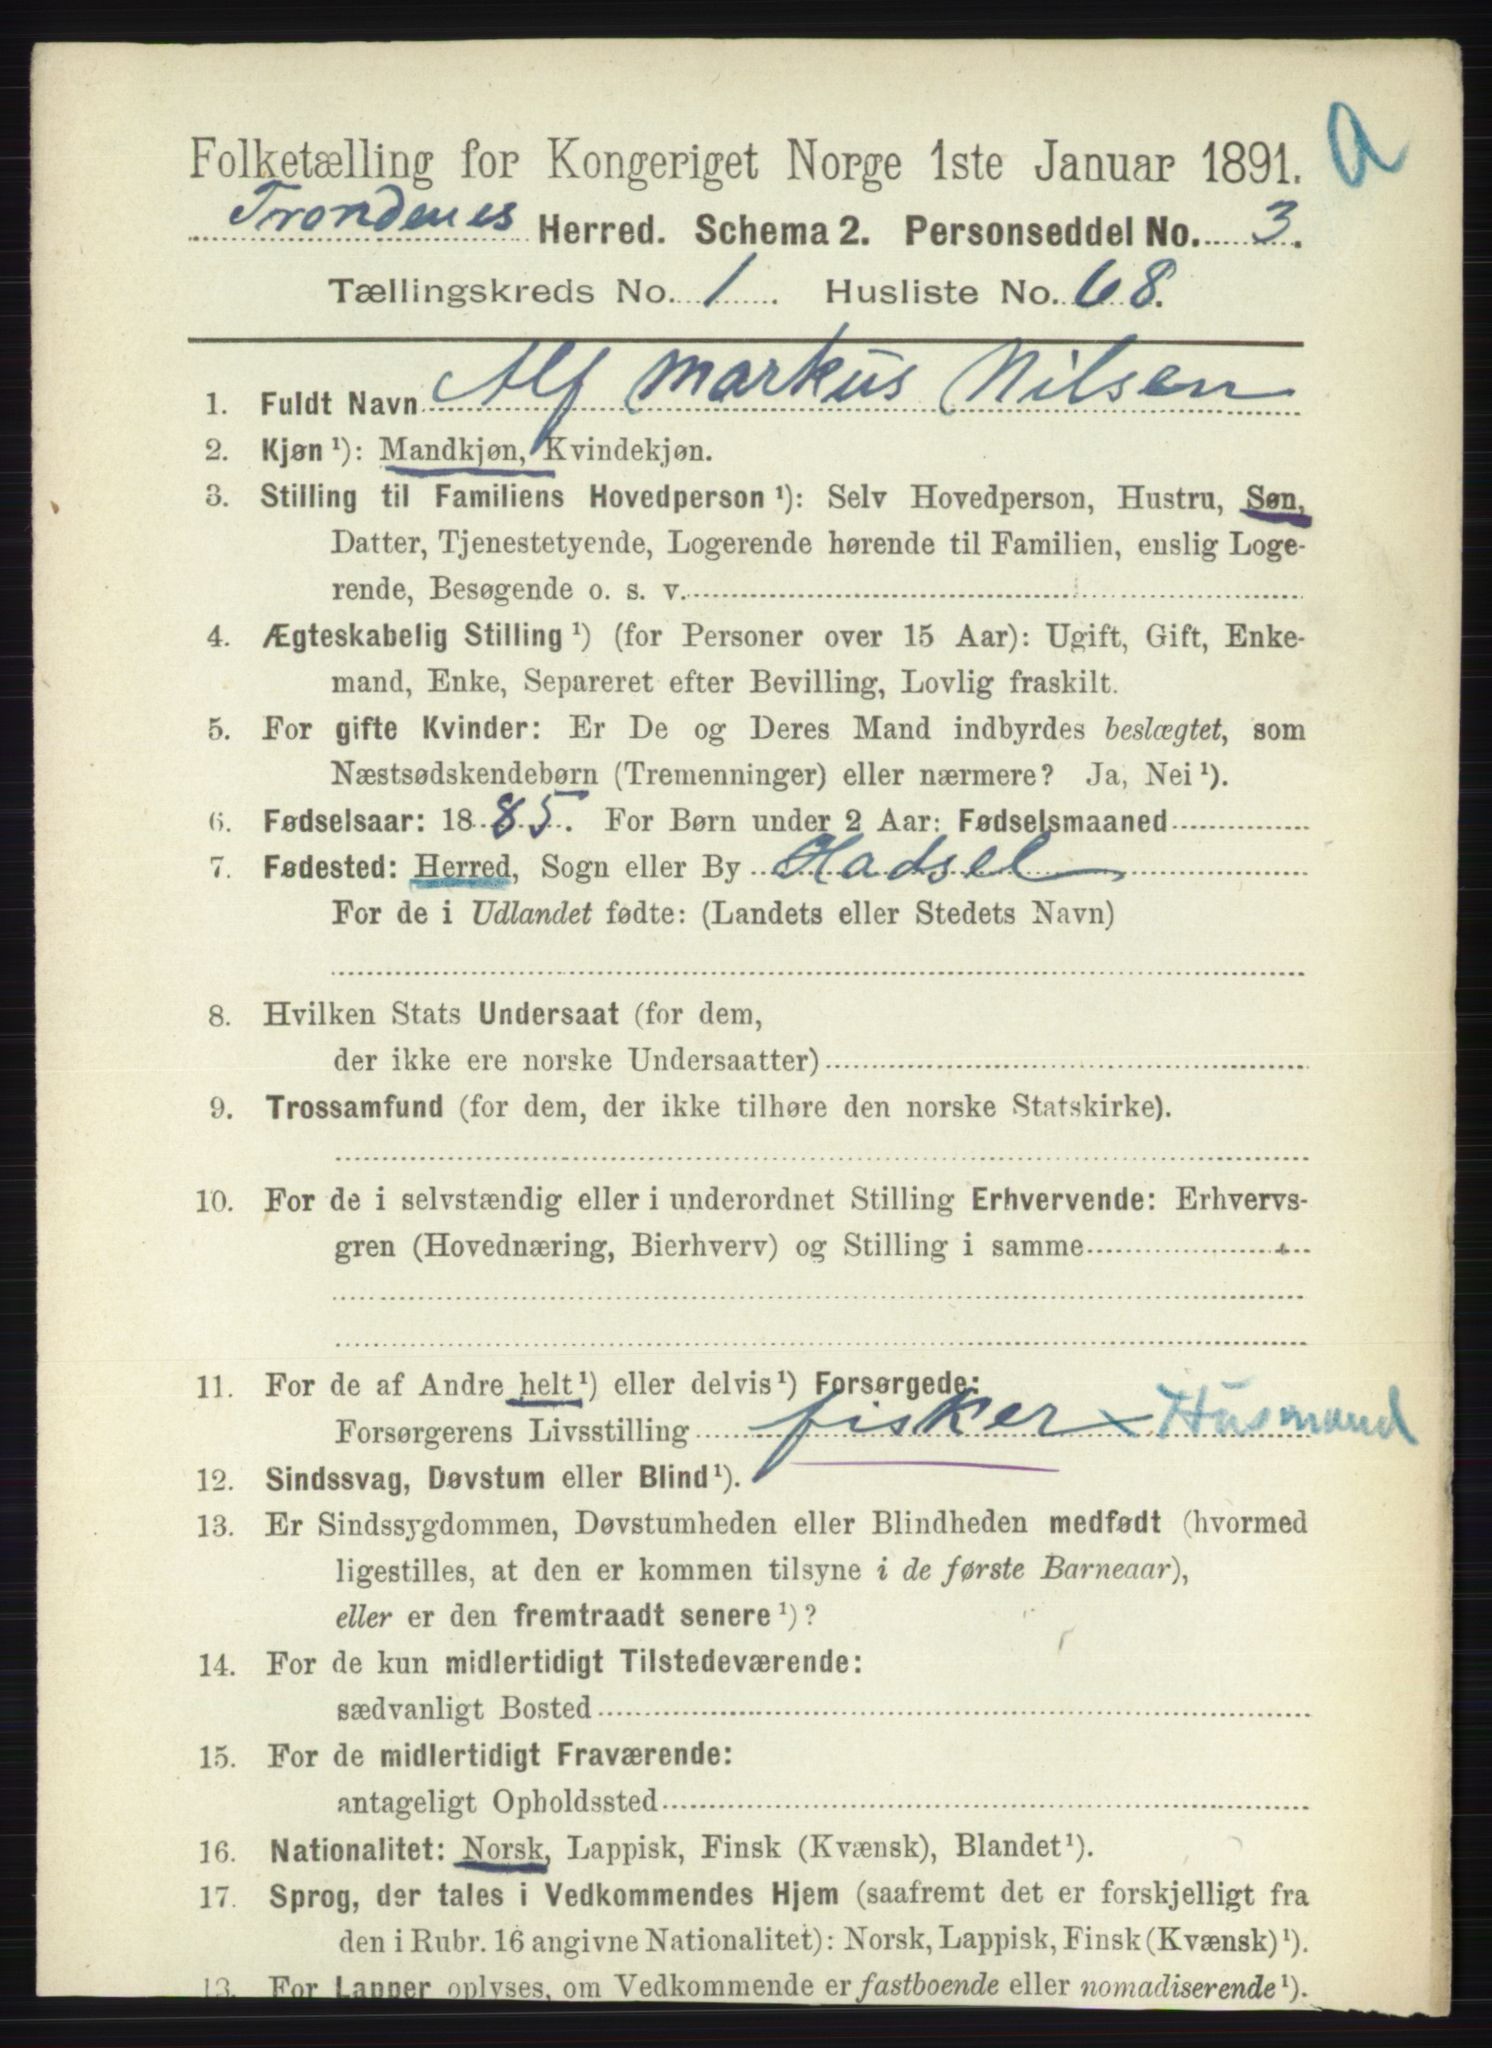 Folketælling for Kongeriget Norge 1ste Januar 1891. a
Trondenes Herred. Schema 2. Personseddel No. 3.
Tællingskreds No. 1. Husliste No. 68.
1. Fuldt Navn Alf Markus Nilsen
2. Kjøn ¹): Mandkjøn, Kvindekjøn.
3. Stilling til Familiens Hovedperson ¹): Selv Hovedperson, Hustru, Søn,
Datter, Tjenestetyende, Logerende hørende til Familien, enslig Loge-
rende, Besøgende o. s. v.
4. Ægteskabelig Stilling ¹) (for Personer over 15 Aar): Ugift, Gift, Enke-
mand, Enke, Separeret efter Bevilling, Lovlig fraskilt.
5. For gifte Kvinder: Er De og Deres Mand indbyrdes beslægtet, som
Næstsødskendebørn (Tremenninger) eller nærmere? Ja, Nei ¹).
6. Fødselsaar: 1885. For Børn under 2 Aar: Fødselsmaaned
7. Fødested: Herred, Sogn eller By Hadsel
For de i Udlandet fødte: (Landets eller Stedets Navn)
8. Hvilken Stats Undersaat (for dem,
der ikke ere norske Undersaatter)
9. Trossamfund (for dem, der ikke tilhøre den norske Statskirke).
10. For de i selvstændig eller i underordnet Stilling Erhvervende: Erhvervs-
gren (Hovednæring, Bierhverv) og Stilling i samme
11. For de af Andre helt ¹) eller delvis ¹) Forsørgede:
Forsørgerens Livsstilling fisker x Husmand
12. Sindssvag, Døvstum eller Blind ¹).
13. Er Sindssygdommen, Døvstumheden eller Blindheden medfødt (hvormed
ligestilles, at den er kommen tilsyne i de første Barneaar),
eller er den fremtraadt senere ¹)?
14. For de kun midlertidigt Tilstedeværende:
sædvanligt Bosted
15. For de midlertidigt Fraværende:
antageligt Opholdssted
16. Nationalitet: Norsk, Lappisk, Finsk (Kvænsk), Blandet ¹).
17. Sprog, der tales i Vedkommendes Hjem (saafremt det er forskjelligt fra
den i Rubr. 16 angivne Nationalitet): Norsk, Lappisk, Finsk (Kvænsk) ¹).
13. For Lapper oplyses, om Vedkommende er fastboende eller nomadiserende ¹).